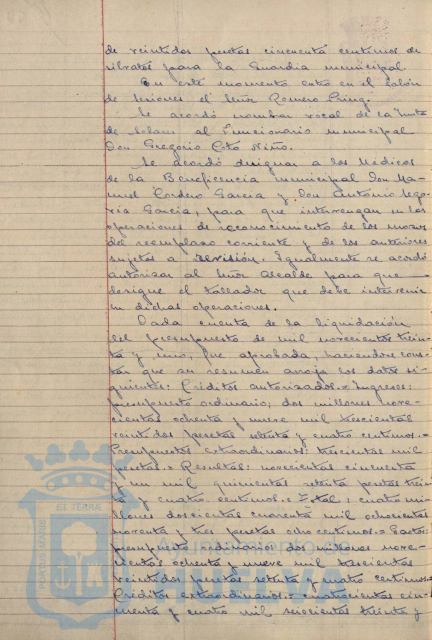 de veintidos pesetas cincuenta centimos de
silvatos para la Guardia municipal.
En este momento entro en el Salón
de Sesiones el Señor Romero
Se acordó nombrar vocal de la Junta
de Solares al Funcionario municipal
Don Gregorio Cota Niño.
Se acordó designar a los Medicos
de la Beneficencia municipal Don Ma-
nuel Cordero Garcia y Don Antonio Sego-
via Garcia, para que intervengan en las
operaciones de reconocimiento de los mozos
del reemplazo corriente y de los anteriores
sujetos a revisión. Igualmente se acordó
autorizar al Señor Alcalde para que
designe el tallador que debe intervenir
en dichas operaciones.
Dada cuenta de la liquidación
del presupuesto de mil novecientos trein-
ta y uno, fue aprobada, haciendose cons-
tar que su resumen arroja los datos si-
guientes: Creditos autorizados.= Ingresos:
presupuesto ordinario, dos millones nove-
cientas ochenta y nueve mil trescientas
veintidos pesetas setenta y cuatro centimos.=
Presupuestos extraordinarios: trescientas mil
pesetas.= Resultas: novecientas cincuenta
y un mil quinientas setenta pesetas trein-
ta y cuatro centimos.= Total: cuatro mi-
llones doscientas cuarenta mil ochocientas
noventa y tres pesetas ocho centimos.= Gastos:
presupuesto ordinario: dos millones nove-
cientas ochenta y nueve mil trescientas
veintidos pesetas setenta y cuatro centimos.=
Creditos extraordinarios: cuatrocientas cin-
cuenta y cuatro mil seiscientas treinta y
Ayuntamiento de
HUELVA